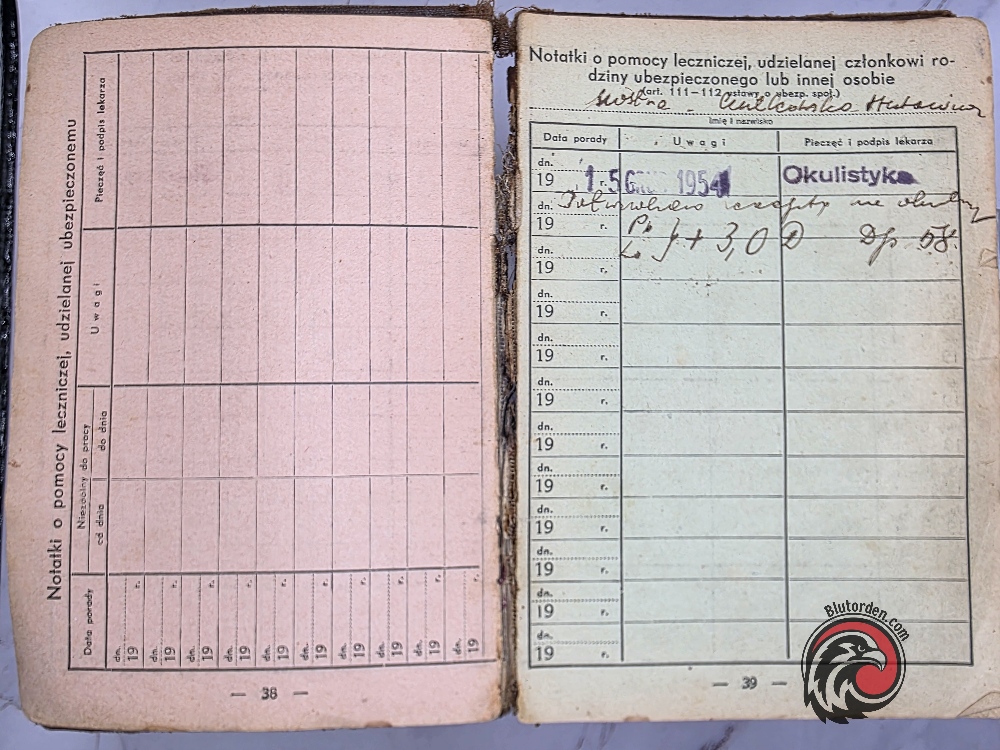 Notatki o pomocy leczniczej, udzielanej ubezpieczonemu
Data porady
Niezdolny do pracy
od dnia
do dnia
Uwagi
Pieczęć i podpis lekarza
dn.
19 r.
dn.
19 r.
dn.
19 r.
dn.
19 r.
dn.
19 r.
dn.
19 r.
dn.
19 r.
dn.
19 r.
dn.
19 r.
dn.
19 r.
— 38 —
Notatki o pomocy leczniczej, udzielanej członkowi ro-
dziny ubezpieczonego lub innej osobie
(art. 111—112 ustawy o ubezp. społ.)
siostra -
Imię i nazwisko
Data porady Uwagi Pieczęć i podpis lekarza
dn.
19 r. 15 1954 Okulistyka
dn.
19 r. + 3,0 D Dp 58.
dn.
19 r.
dn.
19 r.
dn.
19 r.
dn.
19 r.
dn.
19 r.
dn.
19 r.
dn.
19 r.
dn.
19 r.
dn.
19 r.
dn.
19 r.
— 39 —
Blutorden.com